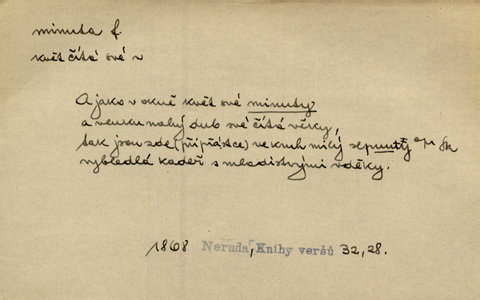 minuta f
květ čítá své v
A jako v okně květ své minuty
a venku nahý dub své čítá věky,
tak jsou zde (při přástce) ve kruh milý sepnuty
vybledlá kadeř s mladistvými vděky.
1868 Neruda, Knihy veršů 32, 28.